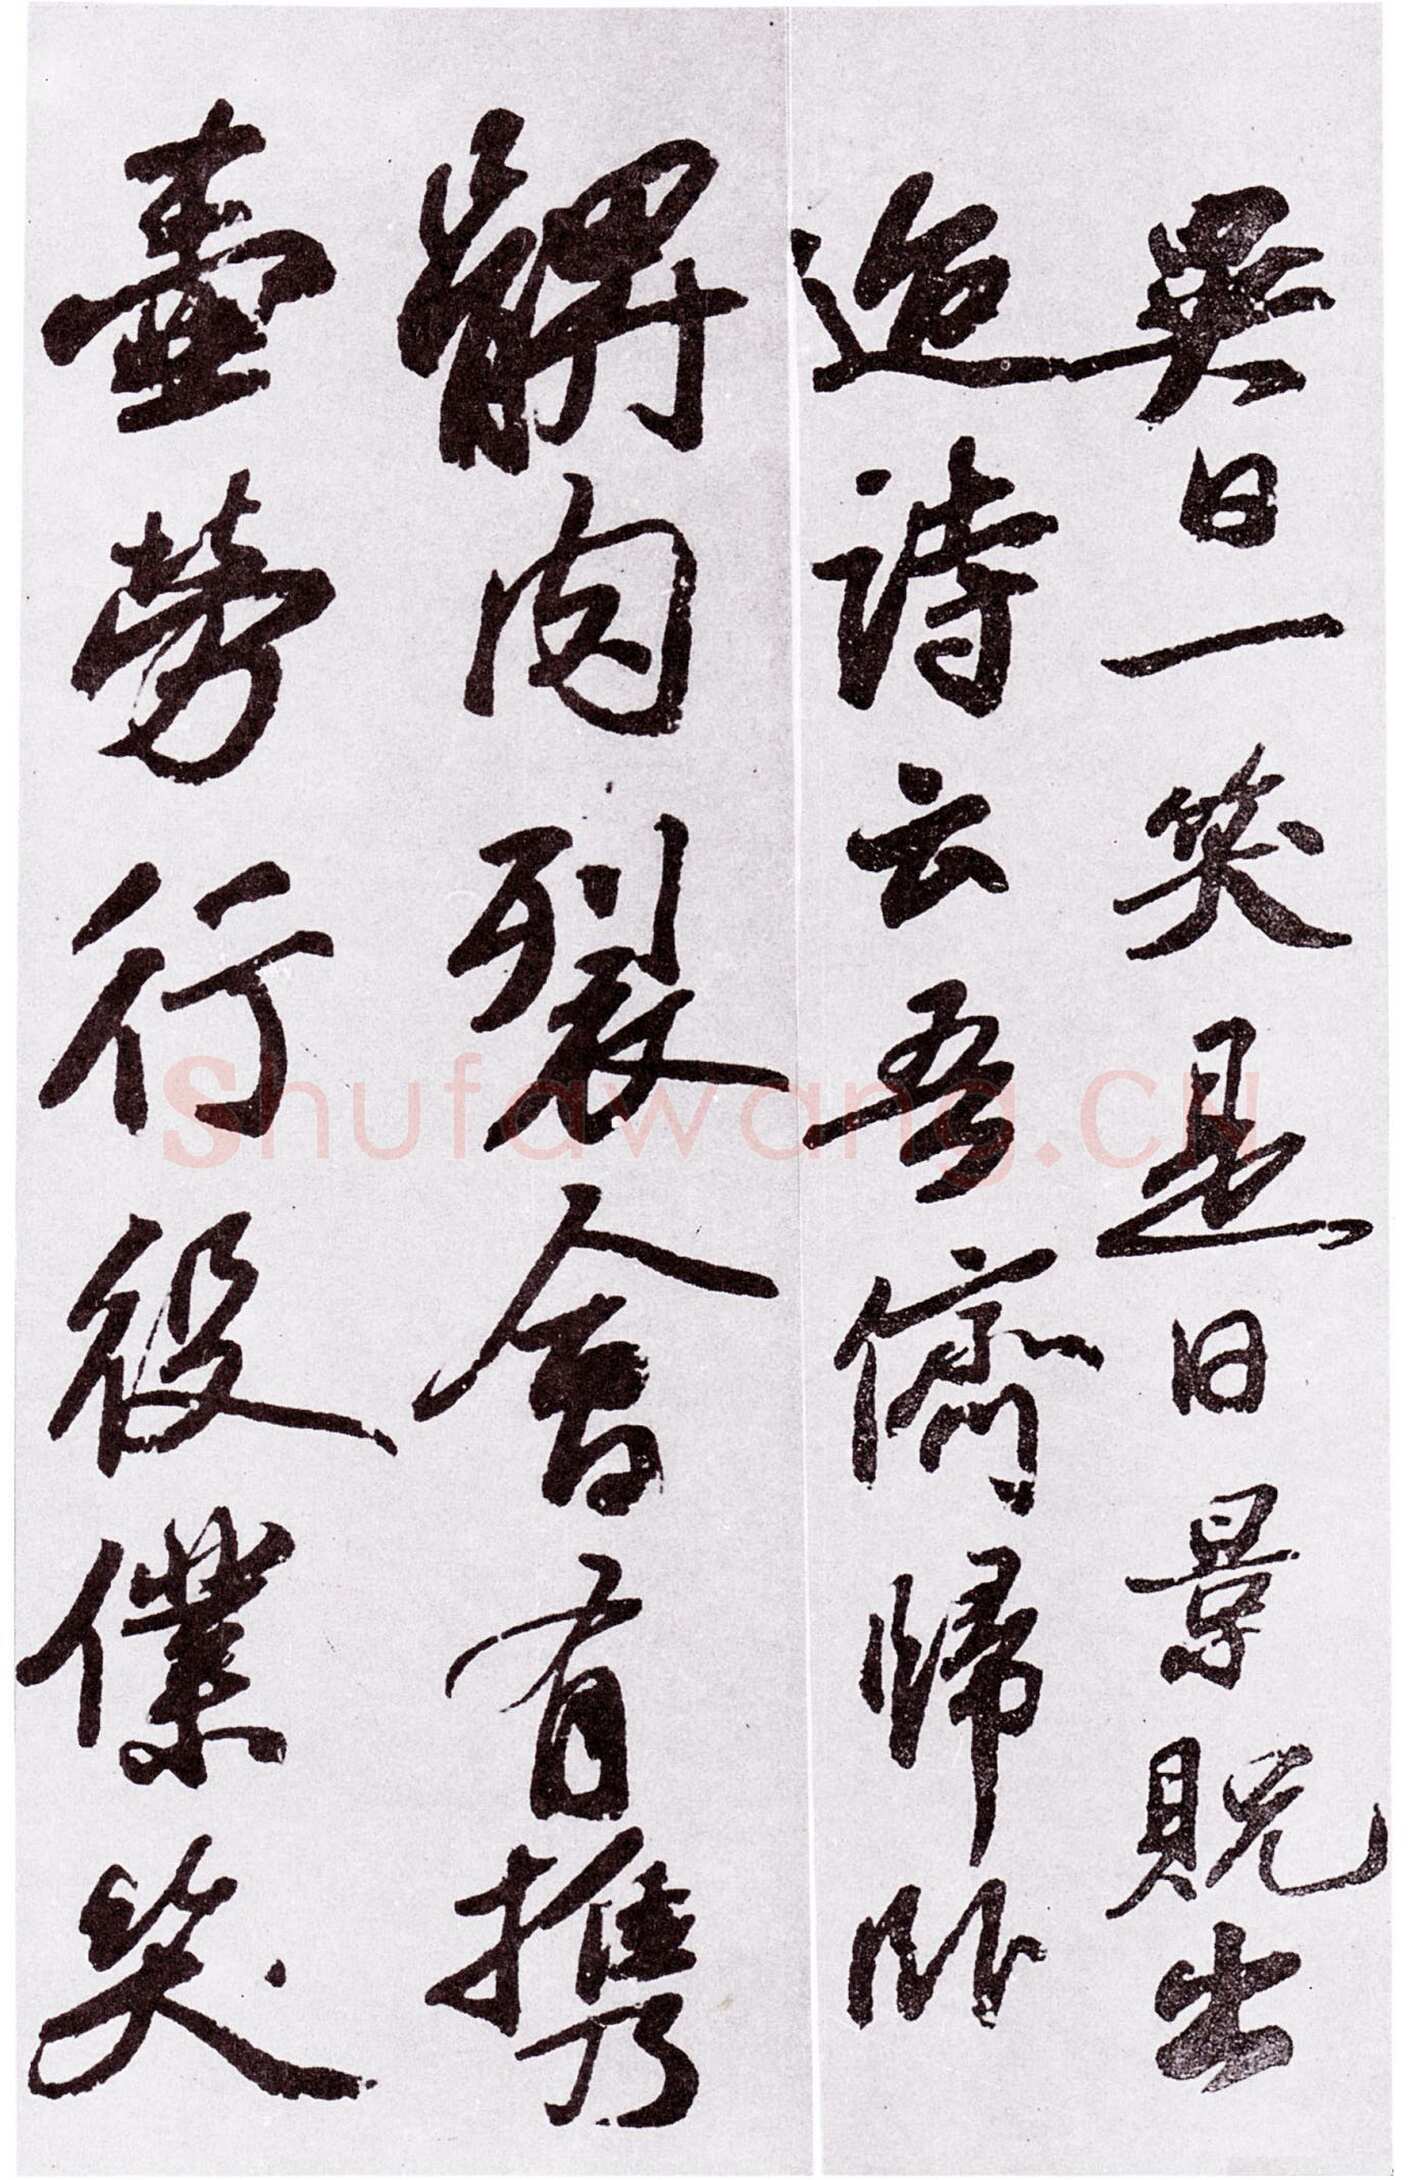 異日一笑是日景貺出
迨詩云吾儕歸卧
髀肉裂會有携
壺勞行役僕笑
shufawang.CN